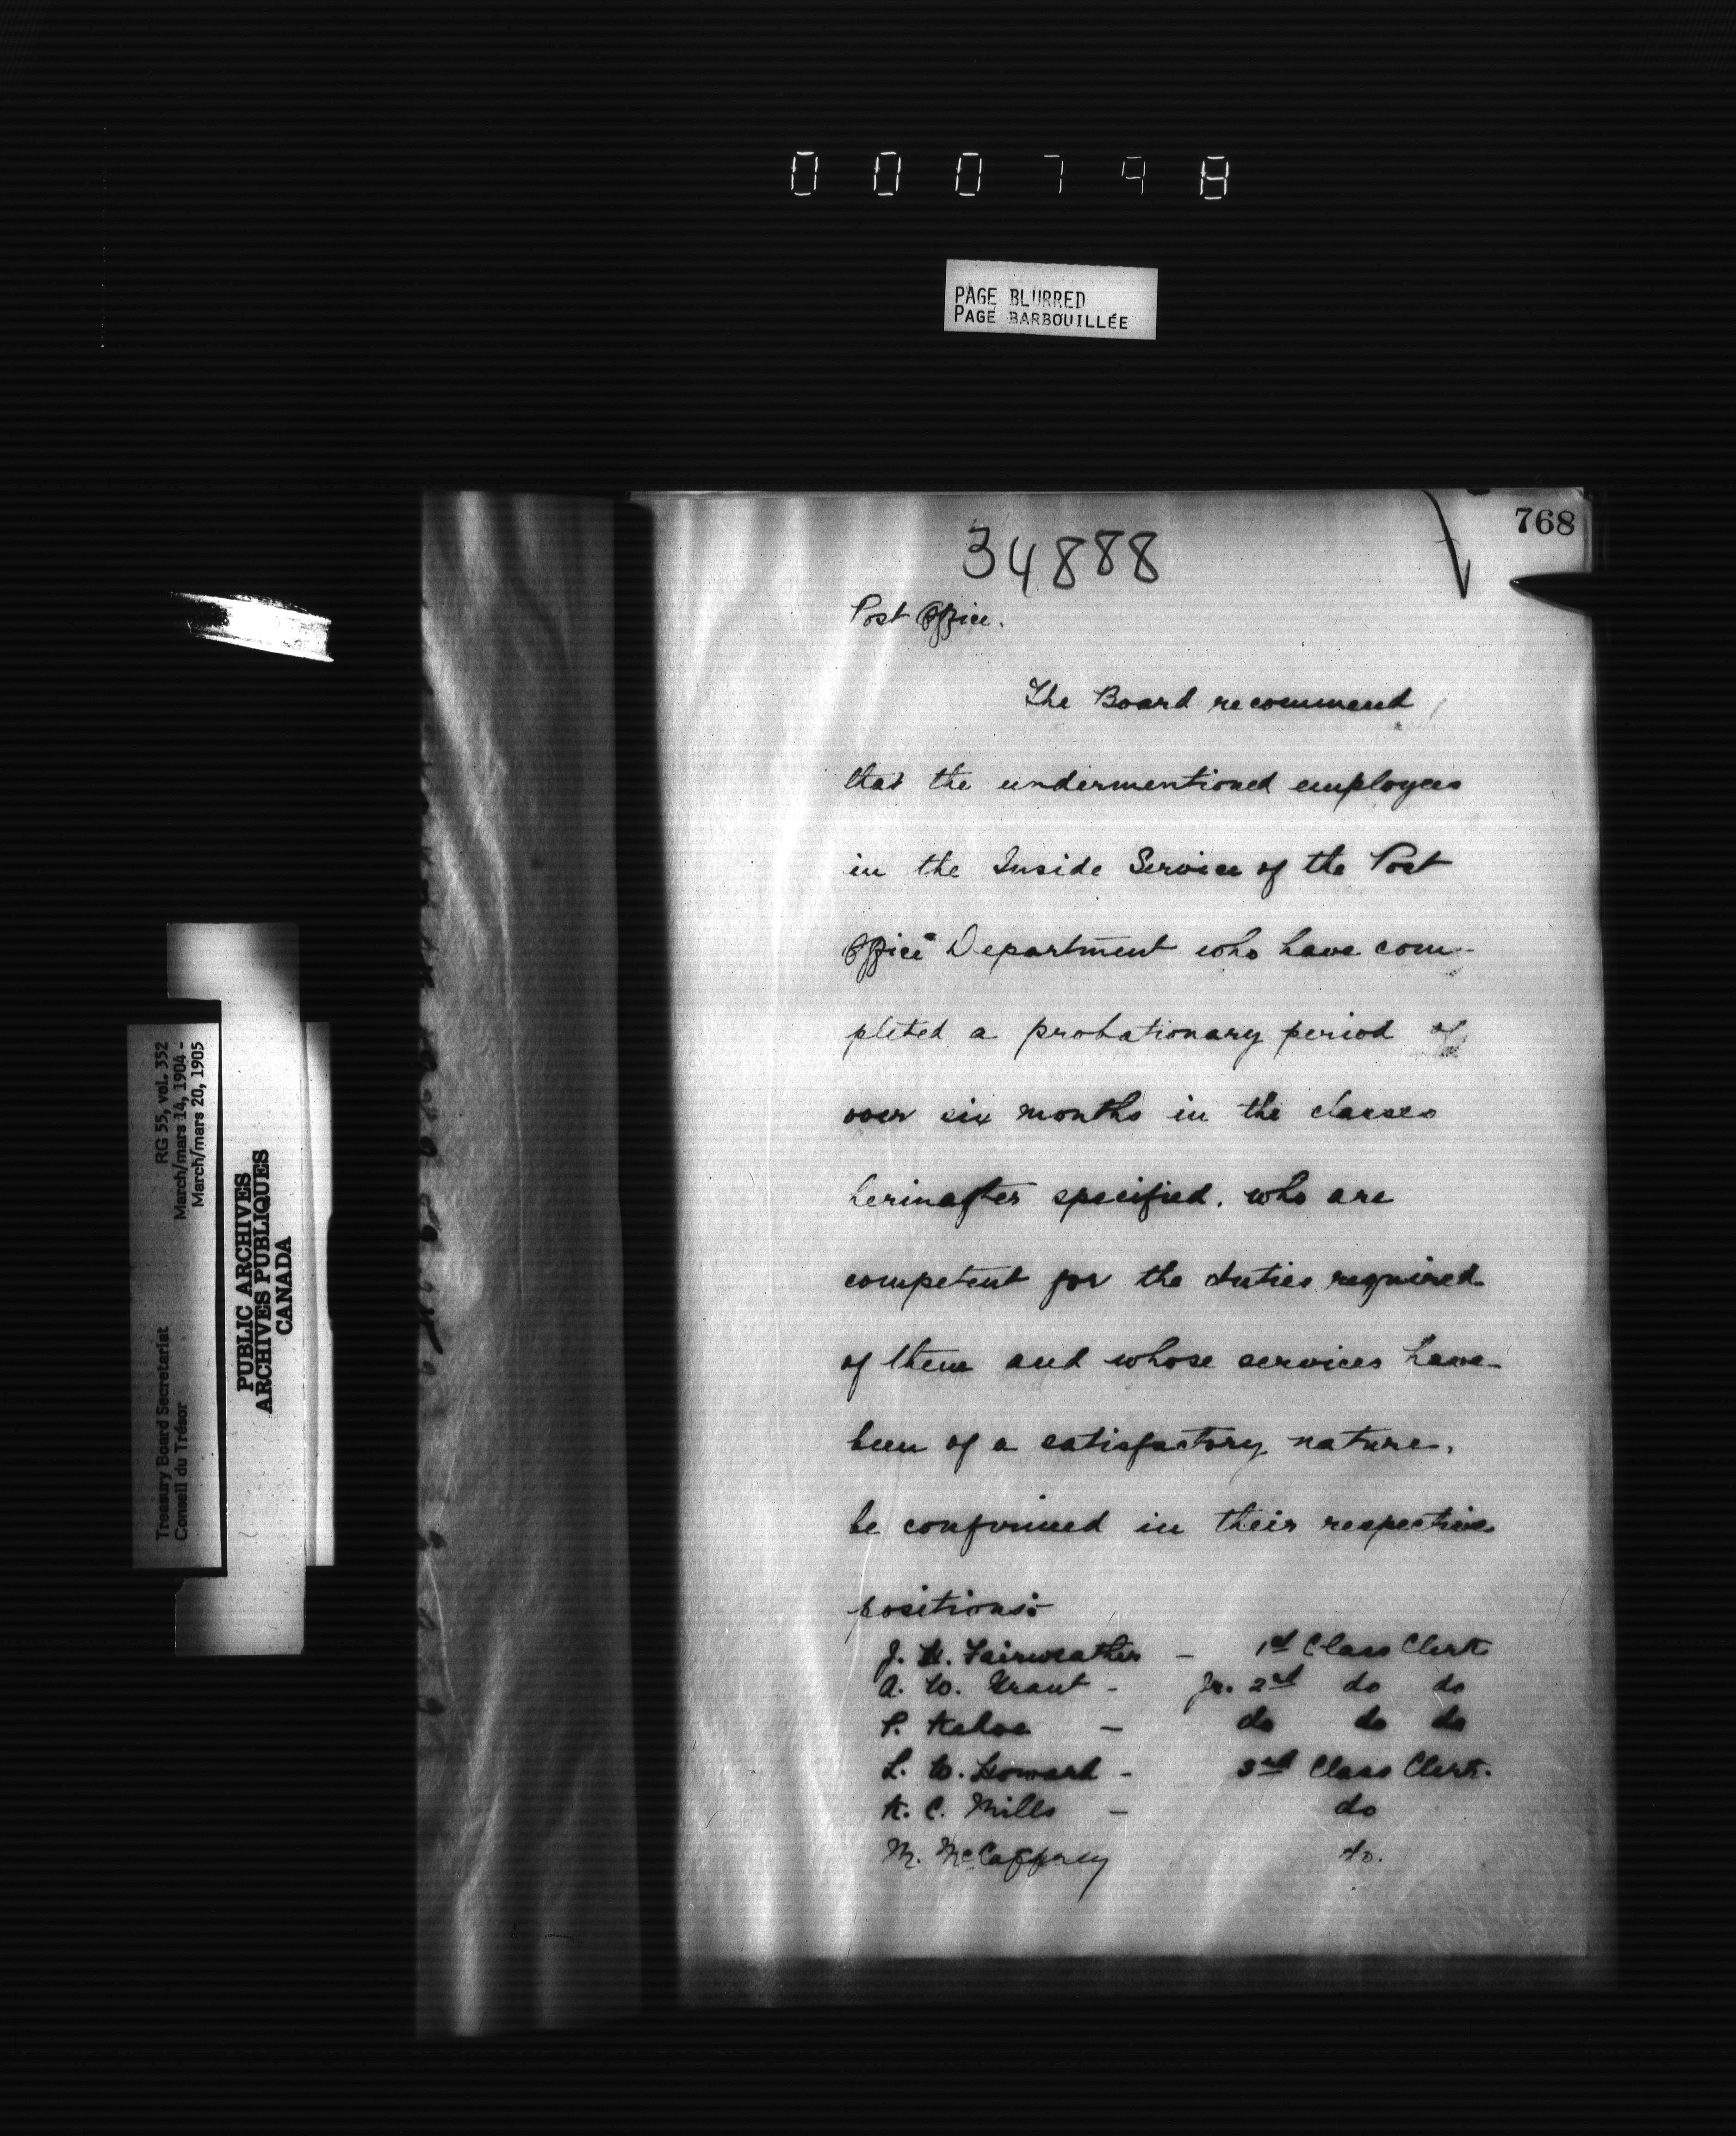 000798
PAGE BLURRED
PAGE BARBOUILLÉE
768
34888
Post Office.
The Board recommend
that the undermentioned employees
in the Inside Service of the Post
Office Department who have com-
pleted a probationary period of
over six months in the classes
herinafter specified, who are
competent for the duties required
of them and whose services have
been of a satisfactory nature,
be confirmed in their respective
positions:-
J. H. Fairweather - 1st Class Clerk
A. W. Grant - Jr. 2nd do do
P. Kehoe - do do do
L. W. Howard - 3rd Class Clerk.
K. C. Mills - do
M. McCaffrey do.
Treasury Board Secretariat RG 55, vol. 352
Conseil du Trésor March/mars 14, 1904 -
March/mars 20, 1905
PUBLIC ARCHIVES
ARCHIVES PUBLIQUES
CANADA